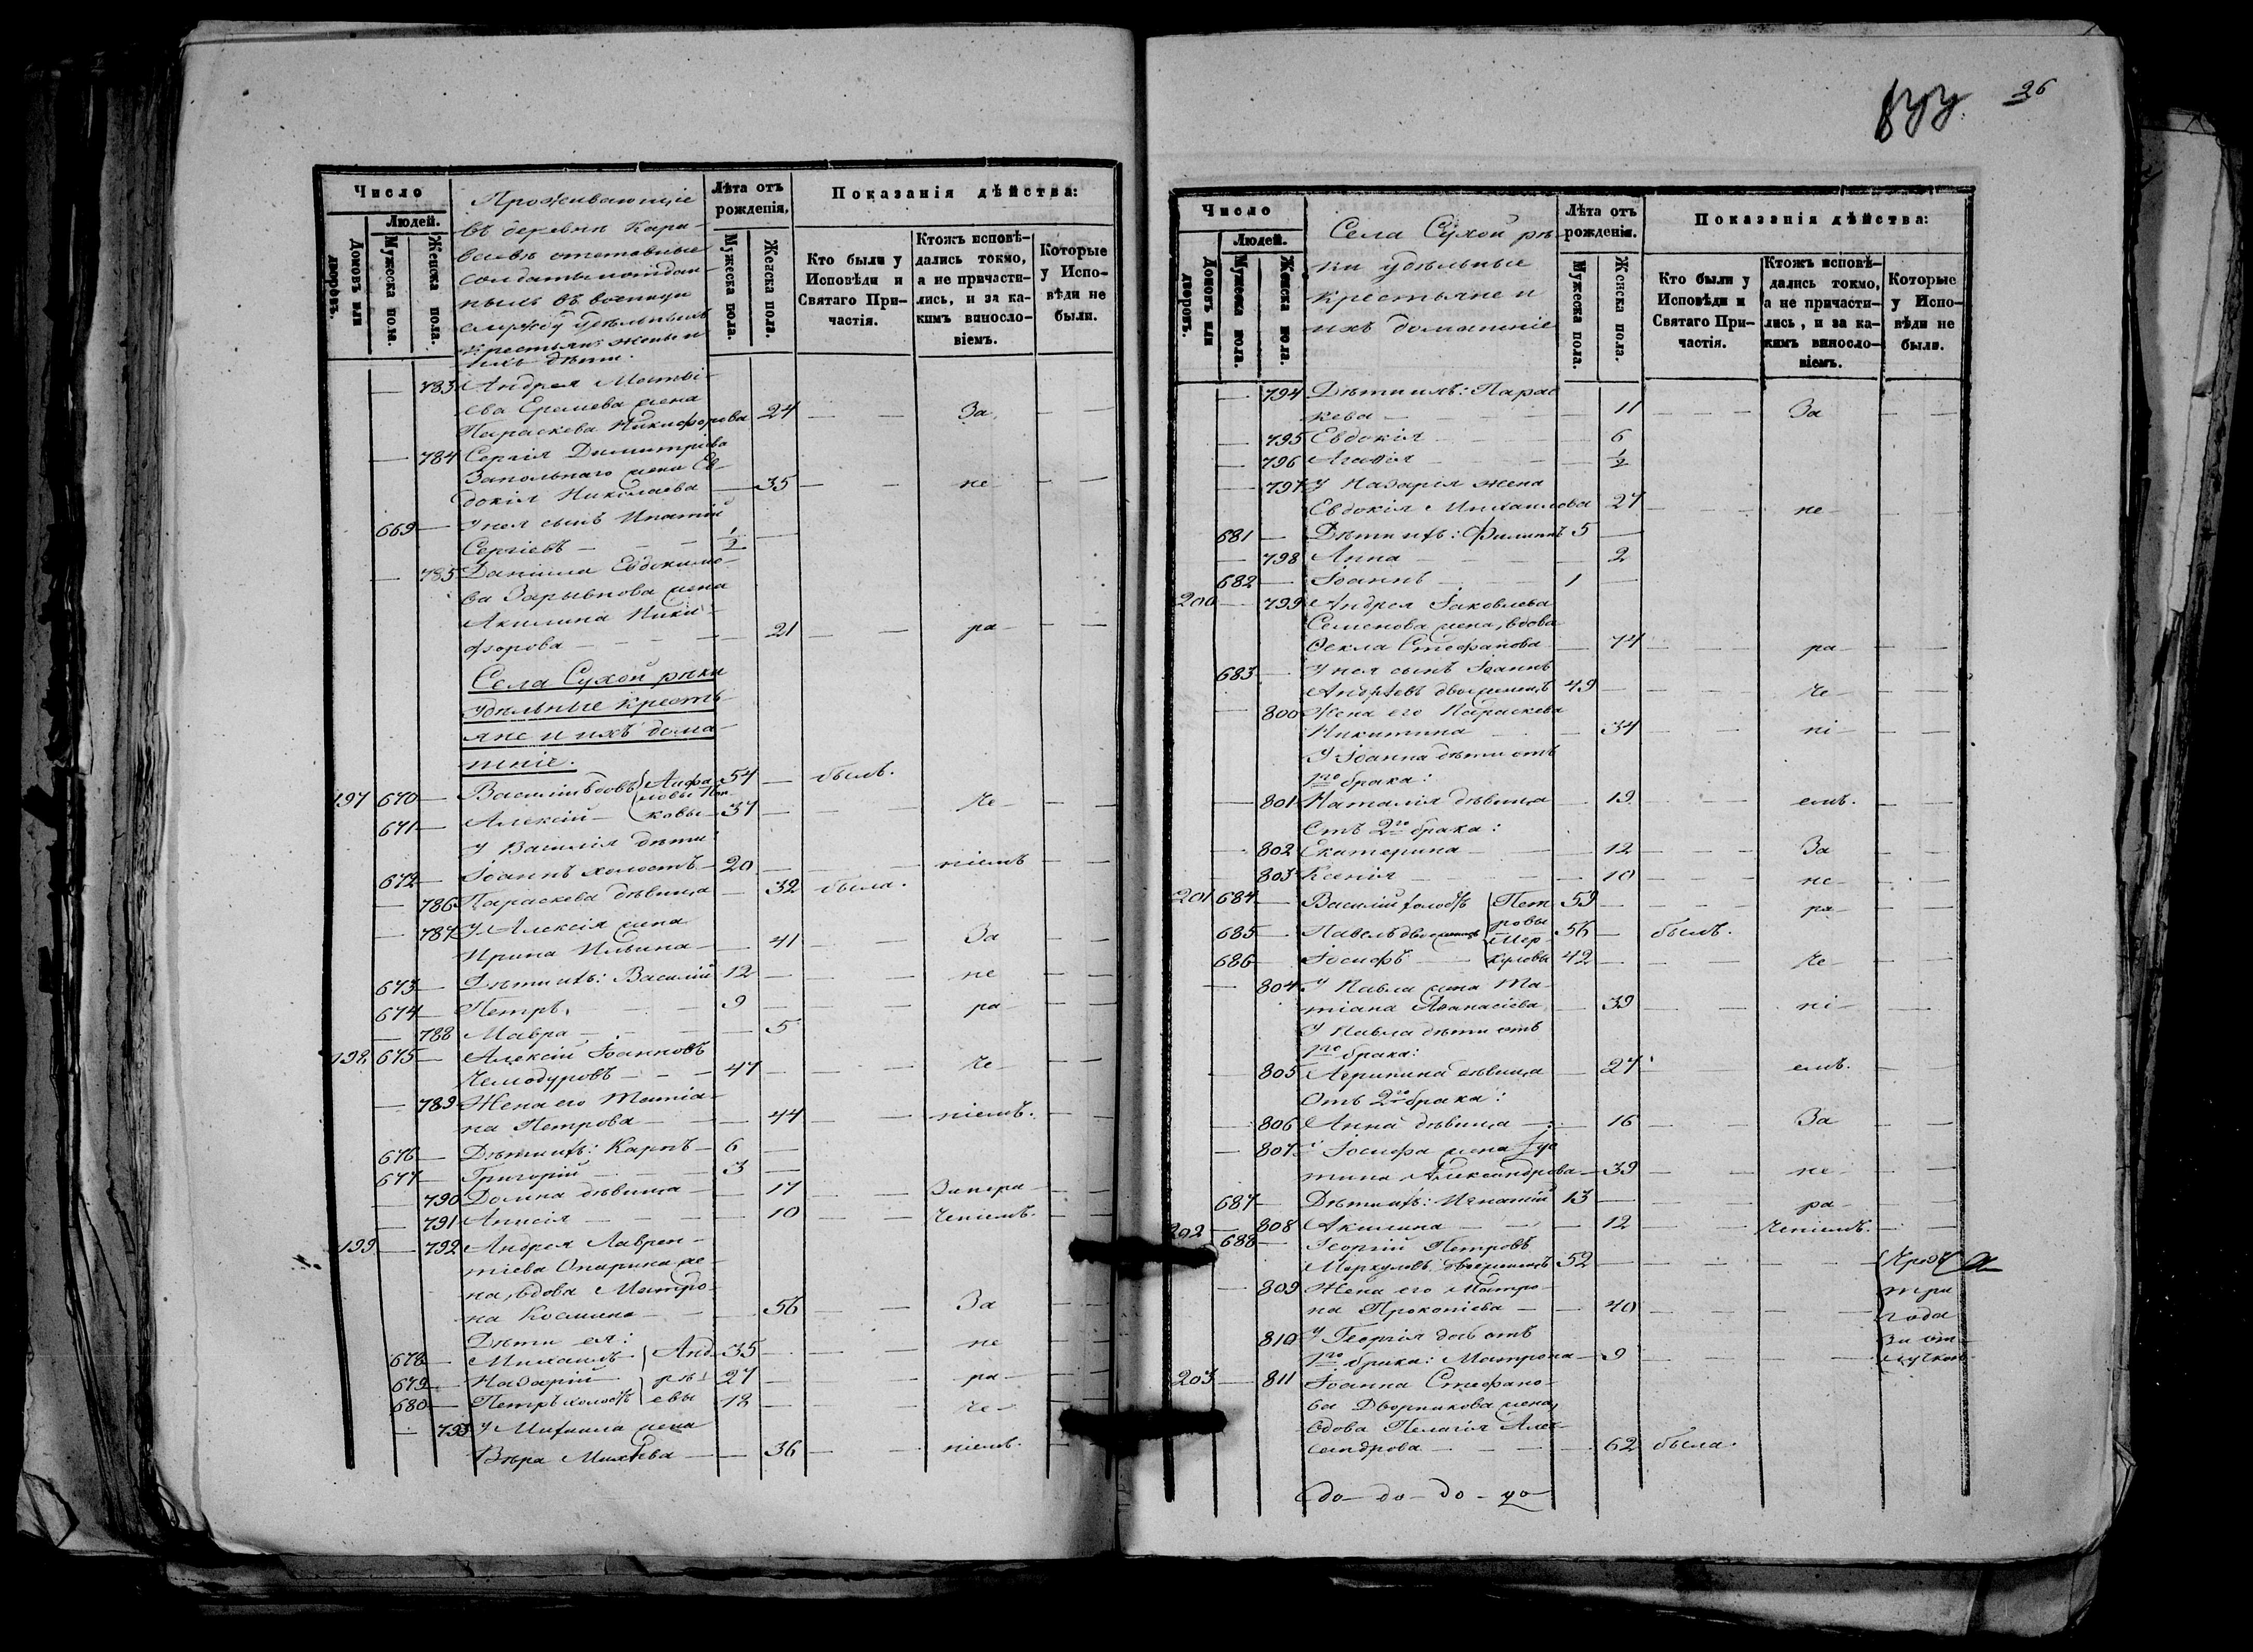 Число
Людей.
Домовъ или дворовъ.
Мужеска пола.
Женска пола.
Проживающіе
въ деревни Кара-
солдаты и отдан-
ныхъ въ военную
службу удѣльныхъ
крестьянъ жены и
ихъ дѣти.
Лѣта отъ рожденія.
Мужеска пола.
Женска пола.
Показанія дѣйства:
Кто были у Исповѣди и Святаго Причастія.
Ктожъ исповѣ-
дались токмо,
а не причасти-
лись, и за ка-
кимъ винosло-
віемъ.
Которые
у Испо-
вѣди не
были.
— 783 Андрея Матвѣ-
ева Еремева жена
Параскева Никифорова 24 — — За — —
— 784 Сергія Димитріева
Запольнаго жена Ев-
докія Николаева — 35 — — не — —
669 — У нея сынъ Игнатій
Сергіевъ — — 1/2 —
— 785 Даніила Евдокимо-
ва Зарывнова жена
Акилина Ники-
форова — — — 21 — — ра — —
Села Сухой рѣки
удѣльные кресть-
яне и ихъ дома-
шніе.
197 670 — Василій вдовъ 54 — былъ.
671 — Алексій — ковы 37 — — — Че —
У Василія дѣти:
672 — Іоаннъ холостъ — 20 — — — ніемъ — —
— 786 Параскева дѣвица — 32 была.
— 787 У Алексія жена
Ирина Ильина — — 41 — — За — —
673 — Дѣти ихъ: Василій 12 — — — не — —
674 — Петръ. — — 9 — — — ра — —
— 788 Мавра — — — — 5
198 675 — Алексій Іоанновъ
Чемодуровъ — — — 47 — — — Че — —
— 789 Жена его Татіа-
на Петрова — — — 44 — — ніемъ. — —
676 — Дѣти ихъ: Карпъ — 6 —
677 — Григорій — — 3 —
— 790 Домна дѣвица — — 17 — — Занера — —
— 791 Анисія — — — — 10 — — Ченіемъ. — —
199 — 792 Андрея Лаврен-
тіева Опарина же-
на, вдова Матро-
на Космина — — 56 — — За — —
Дѣти ея:
678 — Михаилъ Анд- 35 — — — не — —
679 — Назарій рѣ- 27 — — — ра — —
680 — Петръ холостъ евы 18 — — — Че — —
— 793 У Михаила жена
Вѣра Михѣева — — 36 — — ніемъ. — —
26
Число
Людей.
Домовъ или дворовъ.
Мужеска пола.
Женска пола.
Села Сухой рѣ-
ки удѣльные
крестьяне и
ихъ домашніе
Лѣта отъ рожденія.
Мужеска пола.
Женска пола.
Показанія дѣйства:
Кто были у Исповѣди и Святаго Причастія.
Ктожъ исповѣ-
дались токмо,
а не причасти-
лись, и за ка-
кимъ винosло-
віемъ.
Которые
у Испо-
вѣди не
были.
— 794 Дѣти ихъ: Парас-
кева — — 11 — — За — —
— 795 Евдокія — — — 6
— 796 Агафія — — — 1/2
— 797 У Назарія жена
Евдокія Михаилова 27 — — не — —
681 — Дѣти ихъ: Филиппъ 5 —
— 798 Анна — — — 2
682 — Іоаннъ — — 1 —
200 — 799 Андрея Іаковлева
Семенова жена, вдова
Ѳекла Стефанова — 74 — — ра — —
683 — У нея сынъ Іоаннъ
Андрѣевъ двоеженецъ 49 — — — Че — —
— 800 Жена его Параскева
Никитина — — 34 — — ні — —
У Іоанна дѣти отъ
1го брака:
— 801 Наталія дѣвица — 19 — — емъ. — —
Отъ 2го брака:
— 802 Екатерина — — 12 — — За — —
— 803 Ксенія — — — 10 — — не — —
201 684 — Василій холостъ Пет- 59 — — — ра — —
685 — Павелъ двоеженецъ ровы 56 — былъ.
Мер-
686 — Іосифъ — куловы 42 — — — Че — —
— 804 У Павла жена Та-
тіана Аѳанасіева — 39 — — ні — —
У Павла дѣти отъ
1го брака:
— 805 Агрипина дѣвица — 27 — — емъ. — —
Отъ 2го брака:
— 806 Анна дѣвица — — 16 — — За — —
— 807 У Іосифа жена Іус-
тина Александрова — 39 — — не — —
687 — Дѣти ихъ: Игнатій 13 — — — ра — —
— 808 Акилина — — — 12 — — Ченіемъ. — —
202 688 — Георгій Петровъ
Меркуловъ двоеженецъ 52 — — — —
— 809 Жена его Матро-
на Прокопіева — — 40 — — — три
года
— 810 У Георгія дочь отъ
1го брака: Матрона — 9 — — — за от-
лучкою
203 — 811 Іоанна Стефано-
ва Дворникова жена,
вдова Пелагія Алек-
сандрова — — — 62 была.